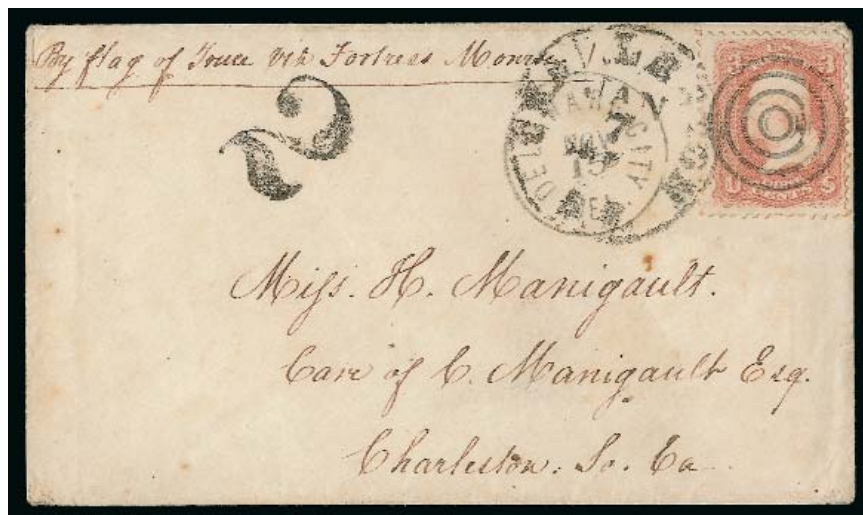 By flag of Truce via Fortress Monroe
2
DELAWARE CITY
NOV
15
DEL.
JAN
7
3 U.S. 3
U CENTS S
Miss. H. Manigault.
Care of C. Manigault Esq.
Charleston. So. Ca